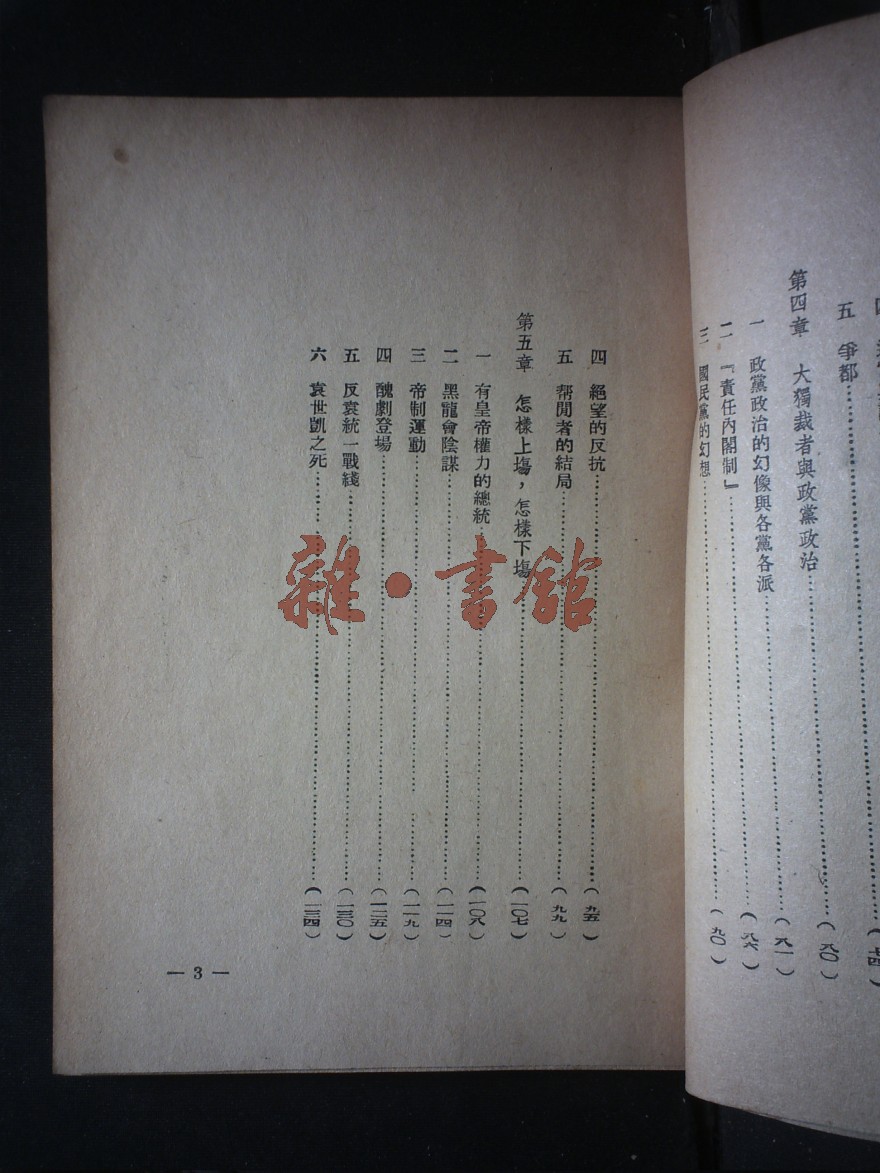 五　爭都……(八〇)
第四章　大獨裁者與政黨政治
一　政黨政治的幻像與各黨各派……(八一)
二　『責任內閣制』……(八六)
三　國民黨的幻想……(九〇)
四　絕望的反抗……(九五)
五　帮閒者的結局……(九九)
第五章　怎樣上塲，怎樣下塲……(一〇七)
一　有皇帝權力的總統……(一〇八)
二　黑龍會陰謀……(一一四)
三　帝制運動……(一一九)
四　醜劇登場……(一二五)
五　反袁統一戰綫……(一三〇)
六　袁世凱之死……(一三四)
— 3 —
雜·書館